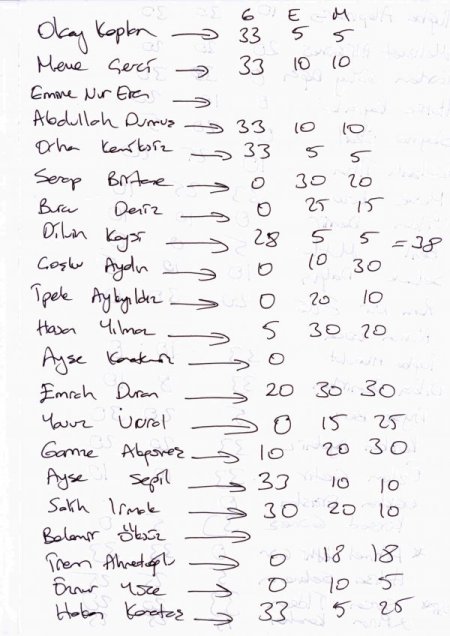 G E M
Okay Kaplan → 33 5 5
Merve Gerci → 33 10 10
Emine Nur →
Abdullah Durmuş → 33 10 10
Orhan → 33 5 5
Serap → 0 30 20
Burcu Deniz → 0 25 15
Dilvin Kaysi → 28 5 5 = 38
Coşku Aydın → 0 10 30
İpek Aykyıldız → 0 20 10
Hasan Yılmaz → 5 30 20
Ayşe → 0
Emrah Duran → 20 30 30
Yavuz → 0 15 25
Gamze Alpsoy → 10 20 30
Ayşe Sepil → 33 10 10
Salih Irmak → 30 20 10
Balamir Öksüz →
İrem Ahmetoğlu → 0 18 18
Öznur Yüce → 0 10 5
Hakan Karataş → 33 5 25